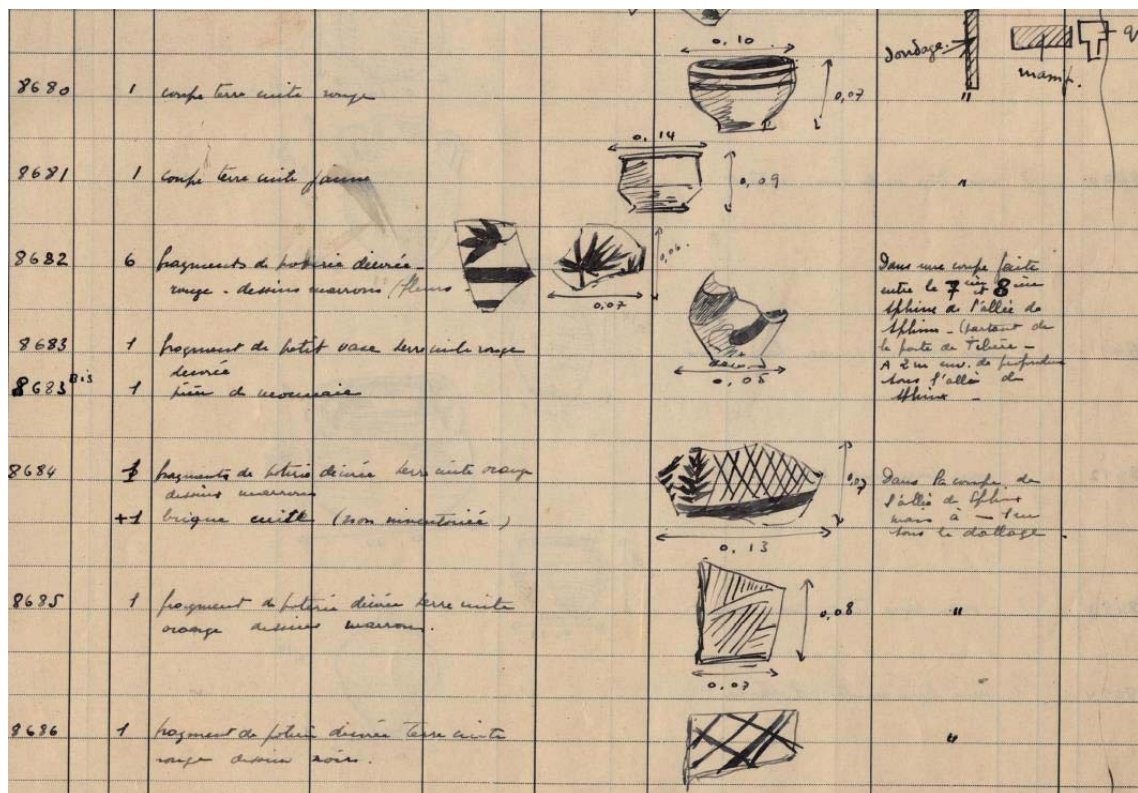 0,10
sondage.
mamp.
8680 1 coupe terre cuite rouge 0,07 "
0,14
8681 1 coupe terre cuite jaune 0,09 "
8682 6 fragments de poterie décorée - 0,06
rouge - dessins marrons (fleurs
0,07
Dans une coupe faite
entre le 7 ième et 8 ième
Sphinx de l'allée de
Sphinx - (partant de
la porte de Tibère -
A 2 m env. de profondeur
sous l'allée de
Sphinx -
8683 1 fragment de petit vase terre cuite rouge
décorée
0,05
8683 Bis 1 pièce de monnaie
8684 1 fragments de poterie décorée terre cuite orange 0,07
dessins marrons
+1 brique cuite (non inventoriée)
0,13
Dans la coupe de
l'allée de Sphinx
mais à - 1m
sous le dallage
8685 1 fragment de poterie décorée terre cuite 0,08 "
orange dessins marrons.
0,07
8686 1 fragment de poterie décorée terre cuite "
rouge dessins noirs.